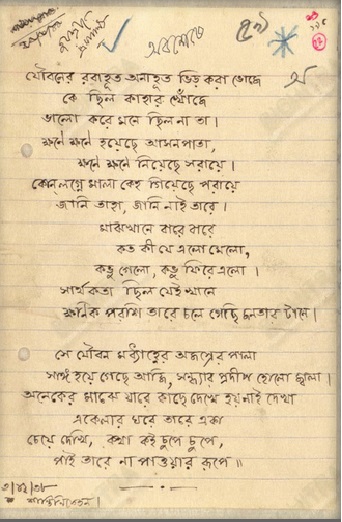 অবশেষে
যৌবনের রবাহূত অনাহূত ভিড় করা ভোজে
কে ছিল কাহার খোঁজে
ভালো করে মনে ছিল না তা।
ক্ষণে ক্ষণে হয়েছে আসন পাতা,
ক্ষণে ক্ষণে নিয়েছে সরায়ে।
কোন্ লগ্নে মালা কেহ গিয়েছে পরায়ে
জানি তাহা, জানি নাই তারে।
মাঝখানে বারে বারে
কত কী যে এলোমেলো,
কভু গেলো, কভু ফিরে এলো।
সার্থকতা ছিল যেই খানে
ক্ষণিক পরশি তারে চলে গেছি জনতার টানে।
সে যৌবন মধ্যাহ্নের অজস্রের পালা
সাঙ্গ হয়ে গেছে আজি, সন্ধ্যার প্রদীপ হোলো জ্বালা।
অনেকের মাঝে যারে কাছে দেখে হয় নাই দেখা
একেলার ঘরে তারে একা
চেয়ে দেখি, কথা কই চুপে চুপে,
পাই তারে না পাওয়ার রূপে॥
শান্তিনিকেতন।